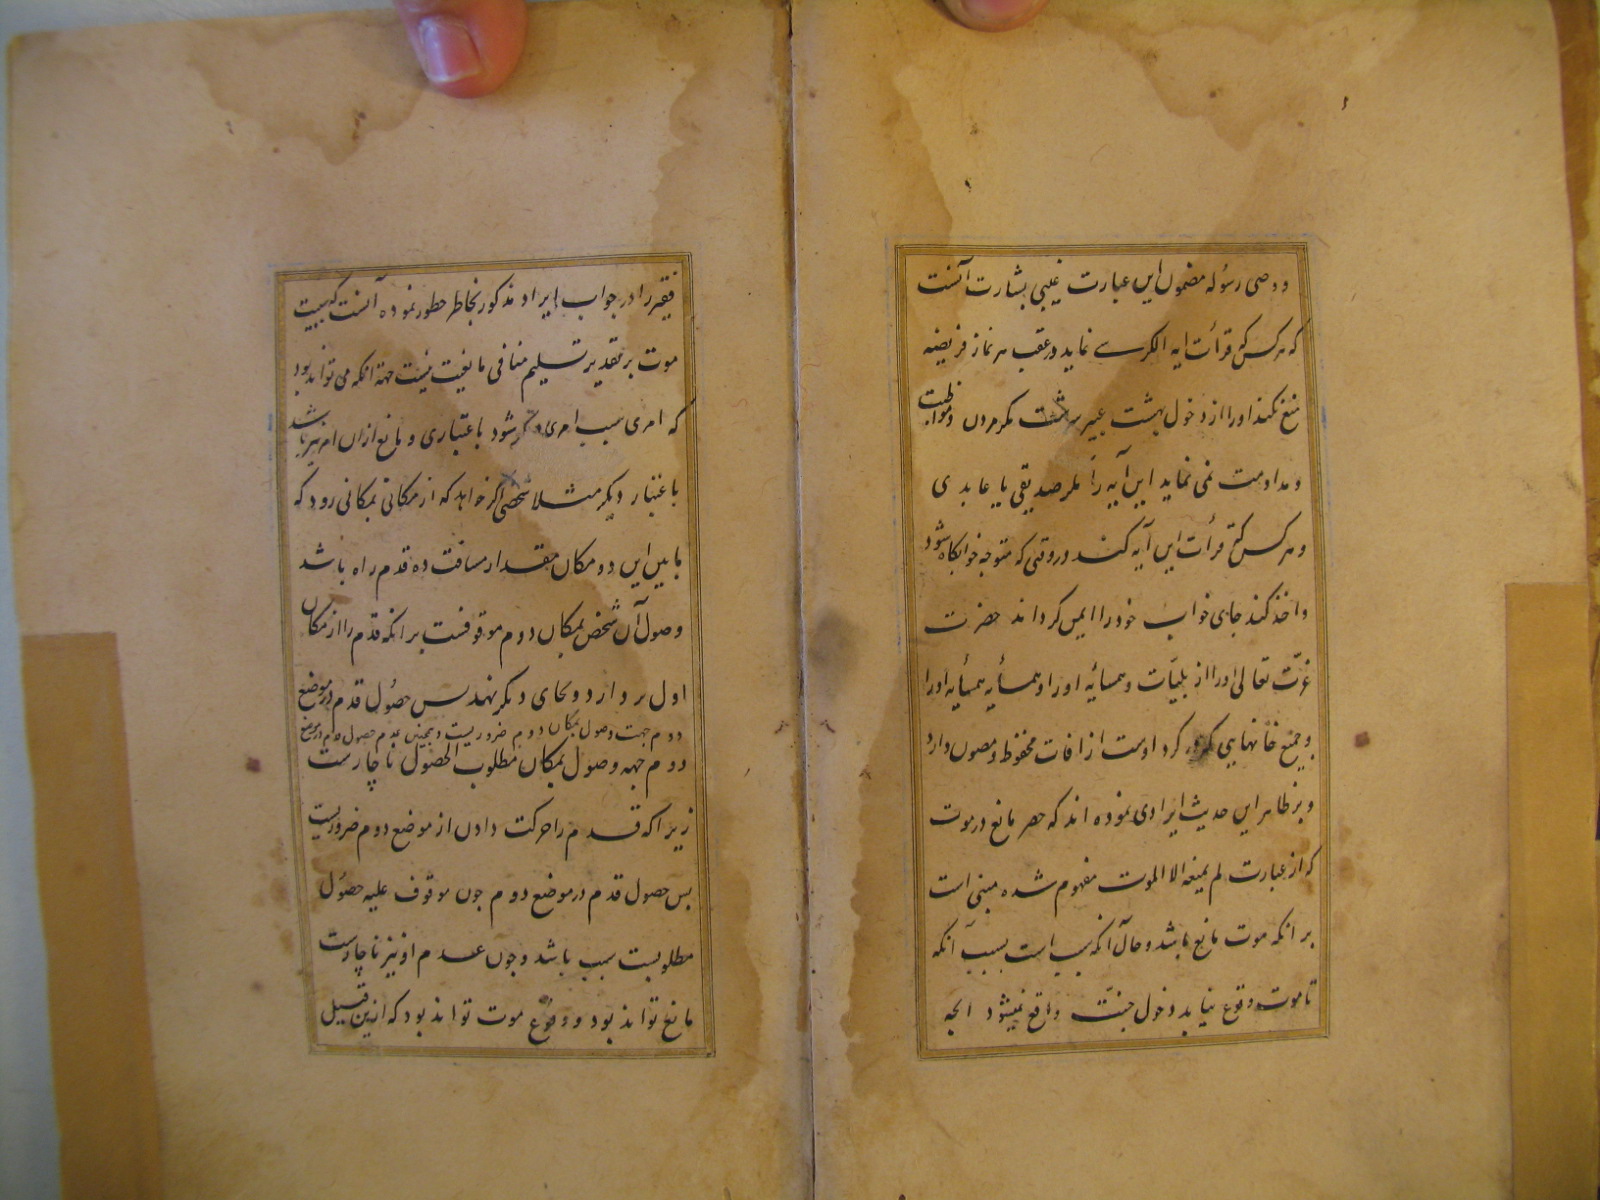 و وصی رسوله مضمون این عبارت غیبی بشارت آنست
که هر کس که قرأت ایه الکرسی نماید در عقب هر نماز فریضه
منع نکند او را از دخول بهشت عنبر سرشت مکر مردن و مواظبت
و مداومت نمی نماید این آیه را مکر صدیقی یا عابدی
و هر کس که قرأت این آیه کند در وقتی که متوجه خوابکاه شود
و اخذ کند جای خواب خود را ایمن کرداند حضرت
عزّت تعالی او را از بلیّات و همسایه او را و همسایه همسایه او را
و جمیع خانهایی که در کرد اوست از افات محفوظ و مصون دارد
و بر ظاهر این حدیث ایرادی نموده اند که حصر مانع در موت
که از عبارت لم یمنعه الا الموت مفهوم شده مبنی است
بر انکه موت مانع باشد و حال آنکه سبب است بسبب آنکه
تا موت وقوع نیابد دخول جنّت واقع نمیشود انچه
فقیر را در جواب ایراد مذکور بخاطر خطور نموده آنست که سببیت
موت بر تقدیر تسلیم منافی مانعیت نیست جهة انکه می تواند بود
که امری سبب امری دیکر شود باعتباری و مانع ازان امر نیز باشد
باعتبار دیکر مثلا شخصی اکر خواهد که از مکانی بمکانی رود که
ما بین این دو مکان مقدار مسافت ده قدم راه باشد
وصول آن شخص بمکان دوم موقوفست بر انکه قدم را از مکان
اول بر دارد و بجای دیکر نهد پس حصول قدم در موضع
دوم جهت وصول بمکان دوم ضروریست و همچنین عدم حصول قدم در موضع
دوم جهه وصول بمکان مطلوب الحصول ناچارست
زیرا که قدم را حرکت دادن از موضع دوم ضروریست
پس حصول قدم در موضع دوم چون موقوف علیه حصول
مطلوبست سبب باشد و چون عدم او نیز ناچارست
مانع تواند بود و وقوع موت تواند بود که ازین قبیل